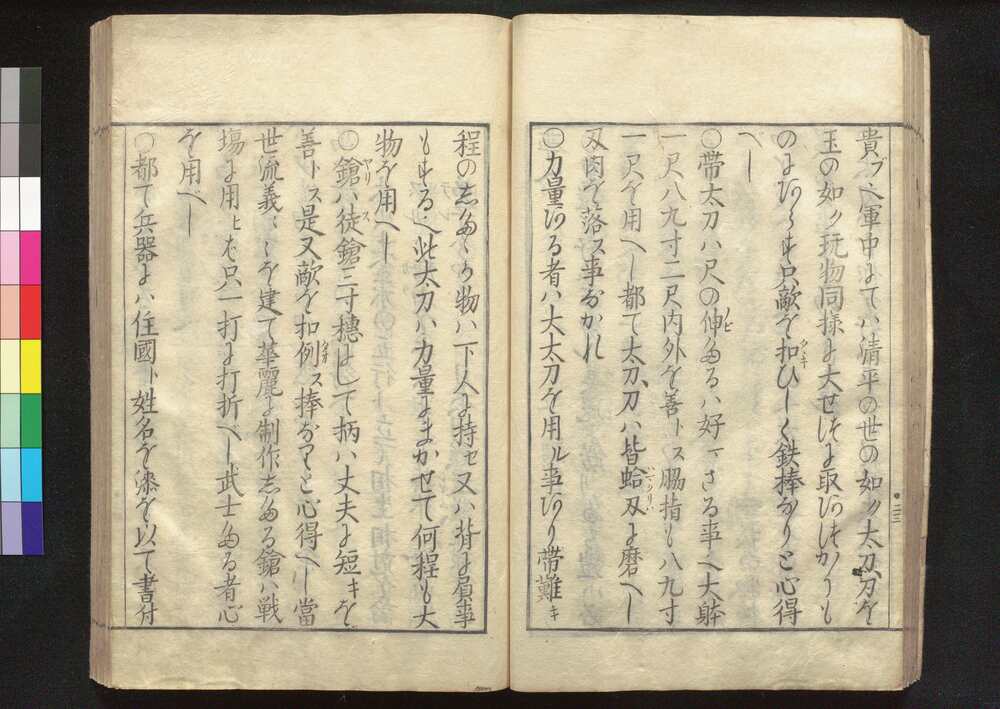 貴ブヘ軍中にてハ清平の世の如ク太刀、刀を
玉の如ク玩物同様に大せつに取あつかうも
のにあらず只敵を扣ひしく鉄捧なりと心得
べし
○帯太刀ハ尺の伸たるハ好マざる事ヘ大躰
一尺八九寸二尺内外を善トス脇指も八九寸
一尺を用べし都て太刀、刀ハ皆蛤刄に磨べし
刄肉を落ス事なかれ
○力量ある者ハ大太刀を用ル事あり帯難キ
程のしたゝか物ハ下人に持セ又ハ背に負事
もするヘ此太刀ハ力量にまかせて何程も大
物を用べし
○鎗ハ徒鎗三寸穂にして柄ハ丈夫に短キを
善トス是又敵を扣例ス捧なりと心得べし當
世流義〻〻を建て華麗に制作したる鎗ハ戦
塲に用ヒば只一打に打折べし武士たる者心
を用べし
○都て兵器にハ住國ト姓名を漆を以て書付